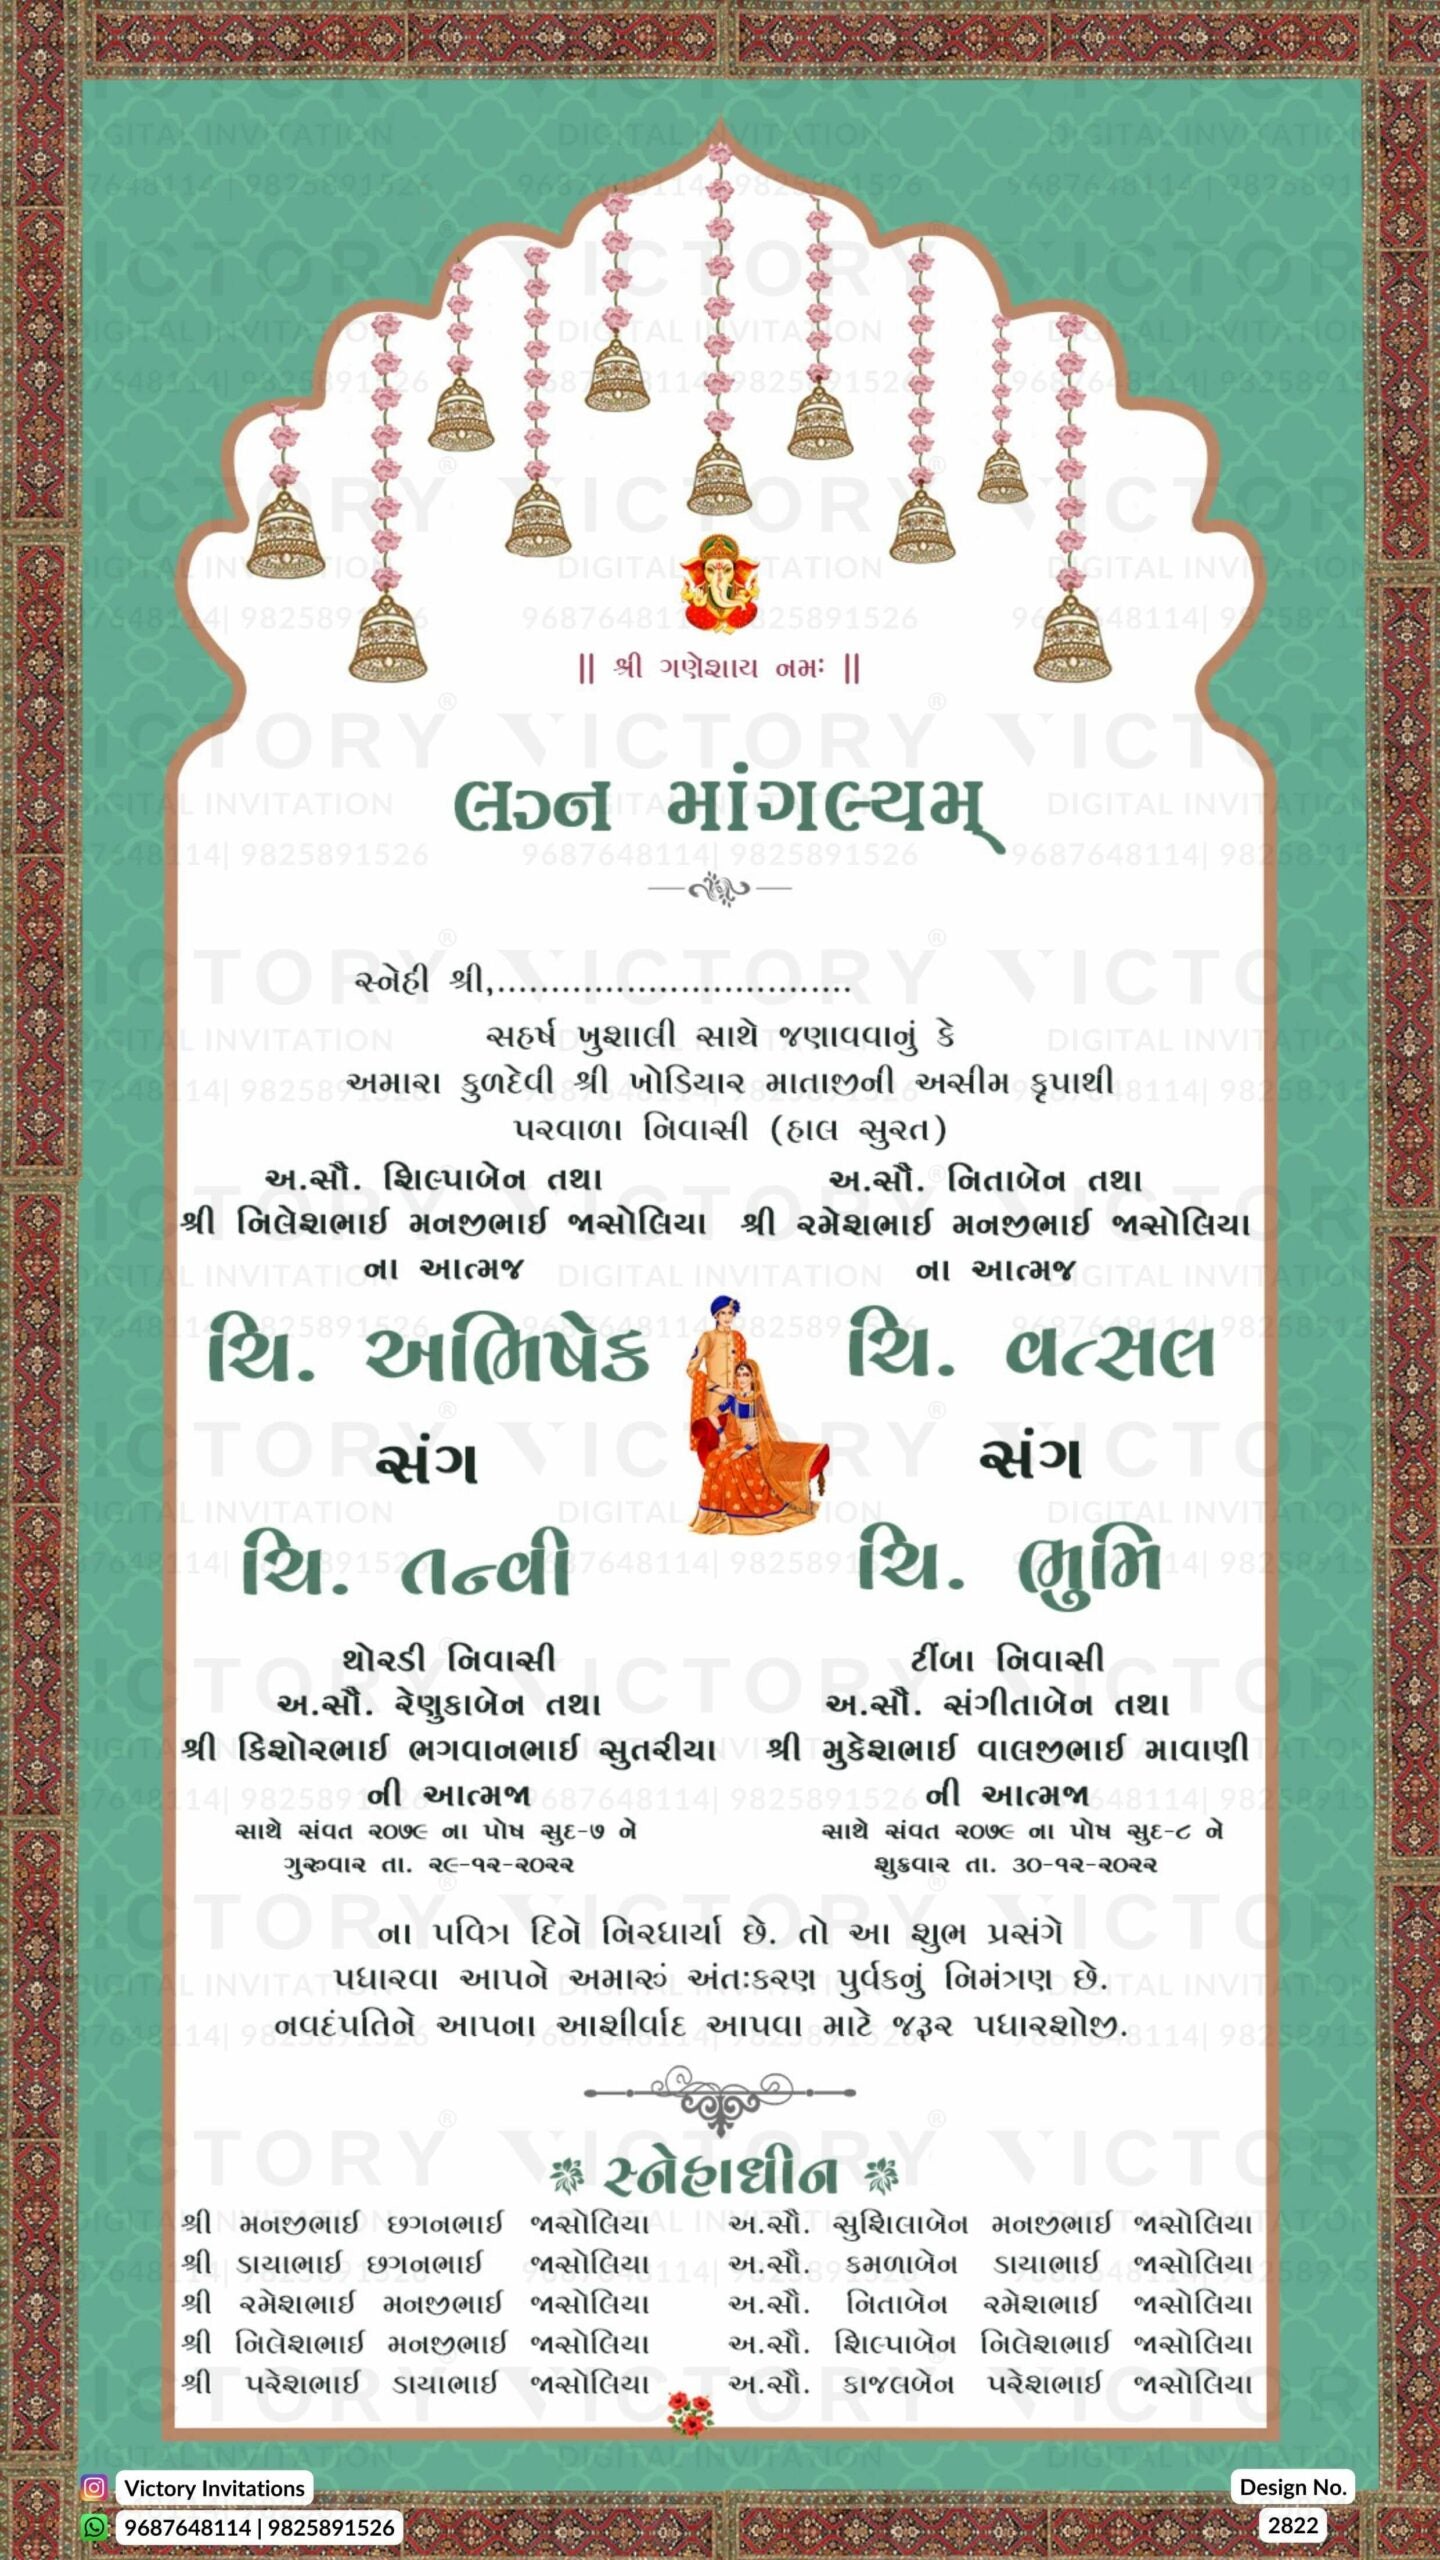 || શ્રી ગણેશાય નમઃ ||
લગ્ન માંગલ્યમ્
સ્નેહી શ્રી,.................................
સહર્ષ ખુશાલી સાથે જણાવવાનું કે
અમારા કુળદેવી શ્રી ખોડિયાર માતાજીની અસીમ કૃપાથી
પરવાળા નિવાસી (હાલ સુરત)
અ.સૌ. શિલ્પાબેન તથા
શ્રી નિલેશભાઈ મનજીભાઈ જાસોલિયા
ના આત્મજ
ચિ. અભિષેક
સંગ
ચિ. તન્વી
થોરડી નિવાસી
અ.સૌ. રેણુકાબેન તથા
શ્રી કિશોરભાઈ ભગવાનભાઈ સુતરીયા
ની આત્મજા
સાથે સંવત ૨૦૭૯ ના પોષ સુદ-૭ ને
ગુરૂવાર તા. ૨૯-૧૨-૨૦૨૨
અ.સૌ. નિતાબેન તથા
શ્રી રમેશભાઈ મનજીભાઈ જાસોલિયા
ના આત્મજ
ચિ. વત્સલ
સંગ
ચિ. ભુમિ
ટીંબા નિવાસી
અ.સૌ. સંગીતાબેન તથા
શ્રી મુકેશભાઈ વાલજીભાઈ માવાણી
ની આત્મજા
સાથે સંવત ૨૦૭૯ ના પોષ સુદ-૮ ને
શુક્રવાર તા. ૩૦-૧૨-૨૦૨૨
ના પવિત્ર દિને નિરધાર્યા છે. તો આ શુભ પ્રસંગે
પધારવા આપને અમારું અંતઃકરણ પુર્વકનું નિમંત્રણ છે.
નવદંપતિને આપના આશીર્વાદ આપવા માટે જરૂર પધારશોજી.
સ્નેહાધીન
શ્રી મનજીભાઈ છગનભાઈ જાસોલિયા અ.સૌ. સુશિલાબેન મનજીભાઈ જાસોલિયા
શ્રી ડાયાભાઈ છગનભાઈ જાસોલિયા અ.સૌ. કમળાબેન ડાયાભાઈ જાસોલિયા
શ્રી રમેશભાઈ મનજીભાઈ જાસોલિયા અ.સૌ. નિતાબેન રમેશભાઈ જાસોલિયા
શ્રી નિલેશભાઈ મનજીભાઈ જાસોલિયા અ.સૌ. શિલ્પાબેન નિલેશભાઈ જાસોલિયા
શ્રી પરેશભાઈ ડાયાભાઈ જાસોલિયા અ.સૌ. કાજલબેન પરેશભાઈ જાસોલિયા
Victory Invitations
9687648114 | 9825891526
Design No.
2822
VICTORY®
DIGITAL INVITATION
9687648114| 9825891526